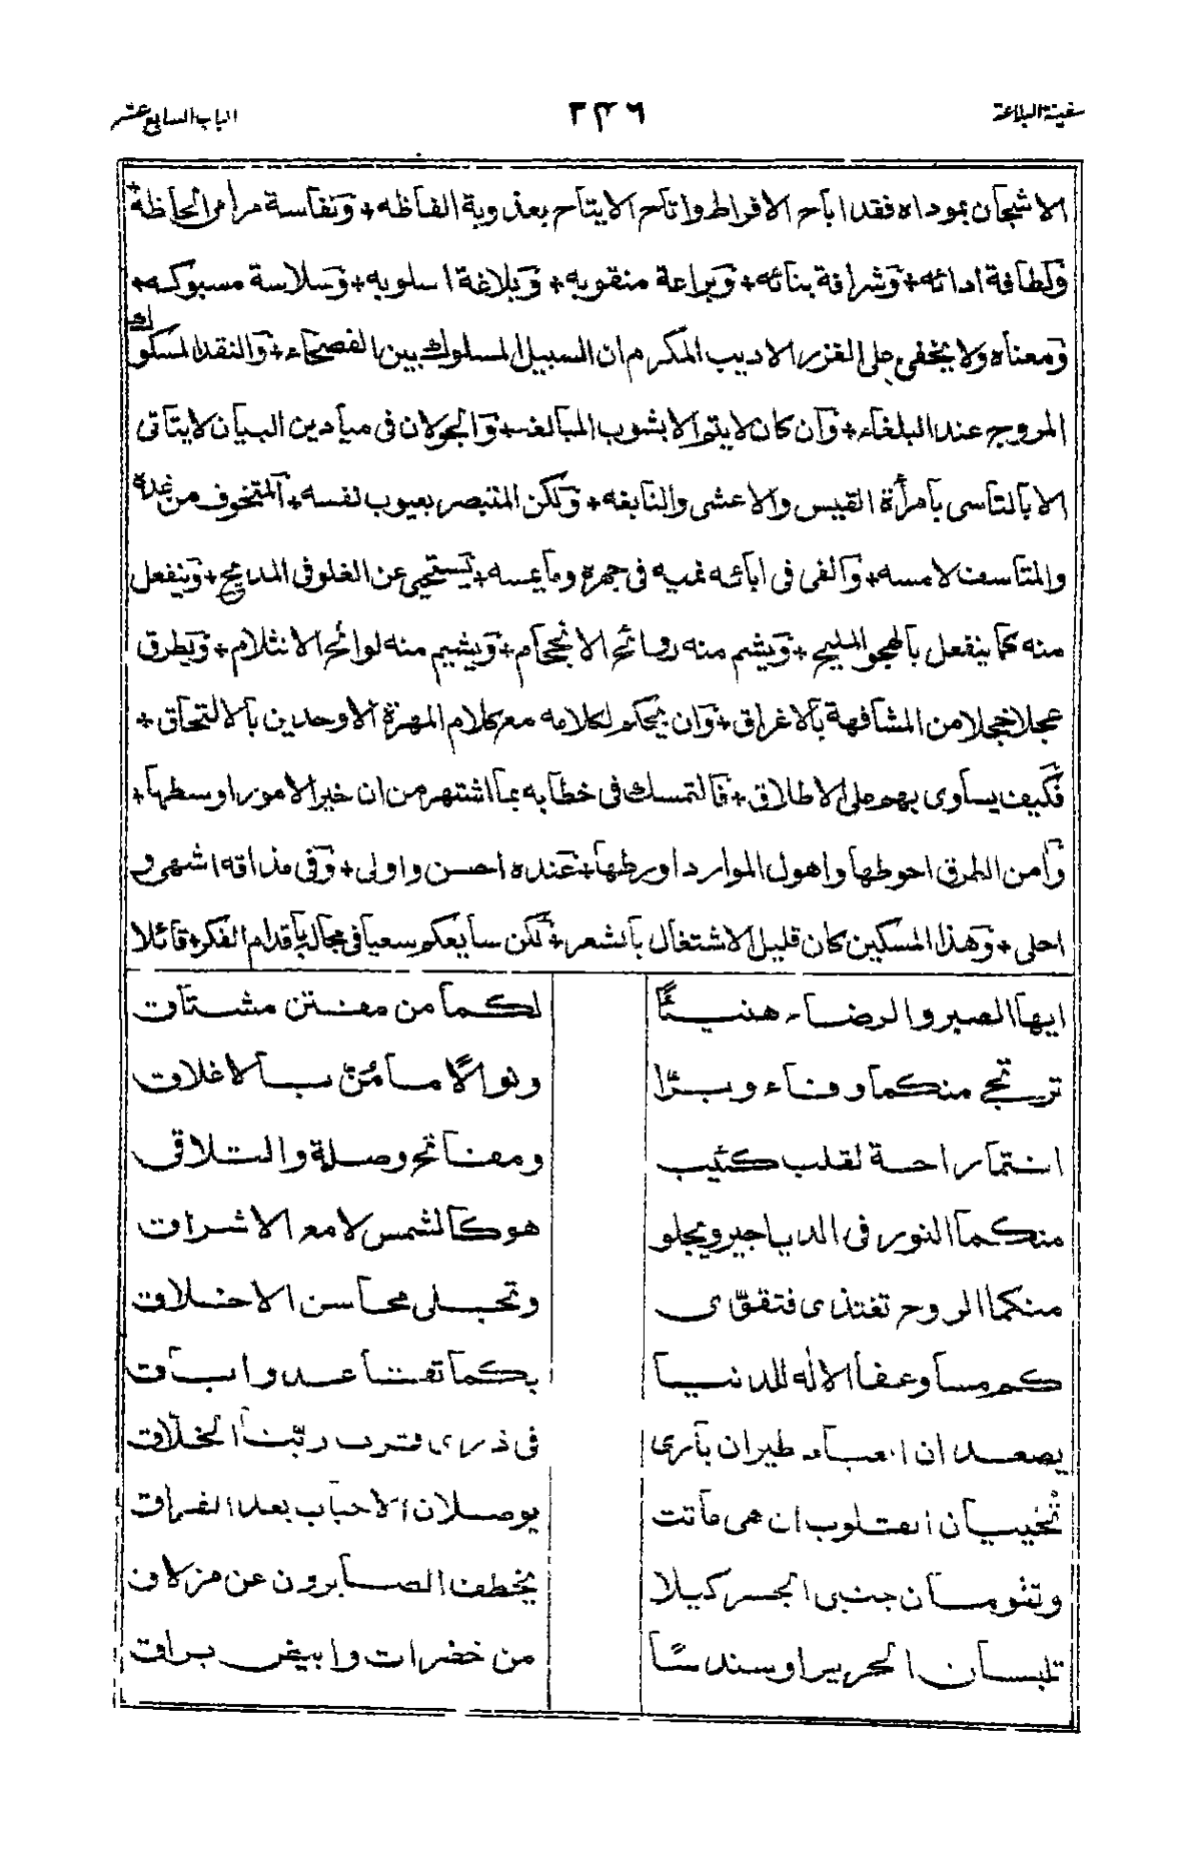 سفينة البلاغة ٢٣٦ الباب السابع عشر
الاشجان بموداه فقد اباح الافراط واتاح الايتاح بعذوبة الفاظه + ونفاسة مرامى الحاظه
ولطافة ادائه + وشرافة بنائه + وبراعة منقوبه + وبلاغة اسلوبه + وسلاسة مسبوكه +
ومعناه ولا يخفى على الغزر الاديب المكرم ان السبيل المسلوك بين الفصحاء + والنقد المسكوك
المروج عند البلغاء + وان كان لا يتم الا بشوب المبالغة + والجولان فى ميادين البيان لا يتأتى
الا بالتأسى بامرأة القيس والاعشى والنابغه + ولكن المتبصر بعيوب نفسه + المتخوف من غده
والمتاسف لامسه + والفى فى ابائه غيه فى جهره وما يمسه + يستحيى عن الغلو فى المديح + وينفعل
منه كما ينفعل بالهجو المليح + ويشم منه روائح الانجحام + ويشيم منه لوائح الانثلام + ويطرق
عجلا خجلا من المشافهة بالاغراق + وان يحكم لكلامه مع كلام المهزة الاوحدين بالالتحاق +
فكيف يساوى بهم على الاطلاق + فالتمسك فى خطابه بما اشتهر من ان خير الامور اوسطها +
وامن الطرق احوطها واهول الموارد اورطها + عنده احسن واولى + وفى مذاقه اشهى و
احلى + وهذا المسكين كان قليل الاشتغال بالشعر + لكن سايعكم سعيا فى مجاله باقدام الفكر + قائلا
ايها الصبر والرضاء هنيئًا لكما من مفتن مشتاق
ترتجى منكما وفاء وبرًا ونوالًا ما مُنّ بالاغلاق
انتما راحة لقلب كئيب ومفاتح وصلة والتلاقى
منكما النور فى الدياجير ويجلو هو كالشمس لامع الاشراق
منكما الروح تغتذى فتقوّى وتحلى محاسن الاخلاق
كم مساو عفا الاله للدنيا بكما تفتنا عد وابآق
يصعدان العباد طيران بارى فى ذرى قرب ربّنا الخلّاق
تخييان القلوب ان هى ماتت يوصلان الاحباب بعد الفراق
وتقومان جنبى الجسر كيلا يخطف الصابرون عن مزلاق
تلبسان الحرير او سندسًا من خضرات وابيض براق